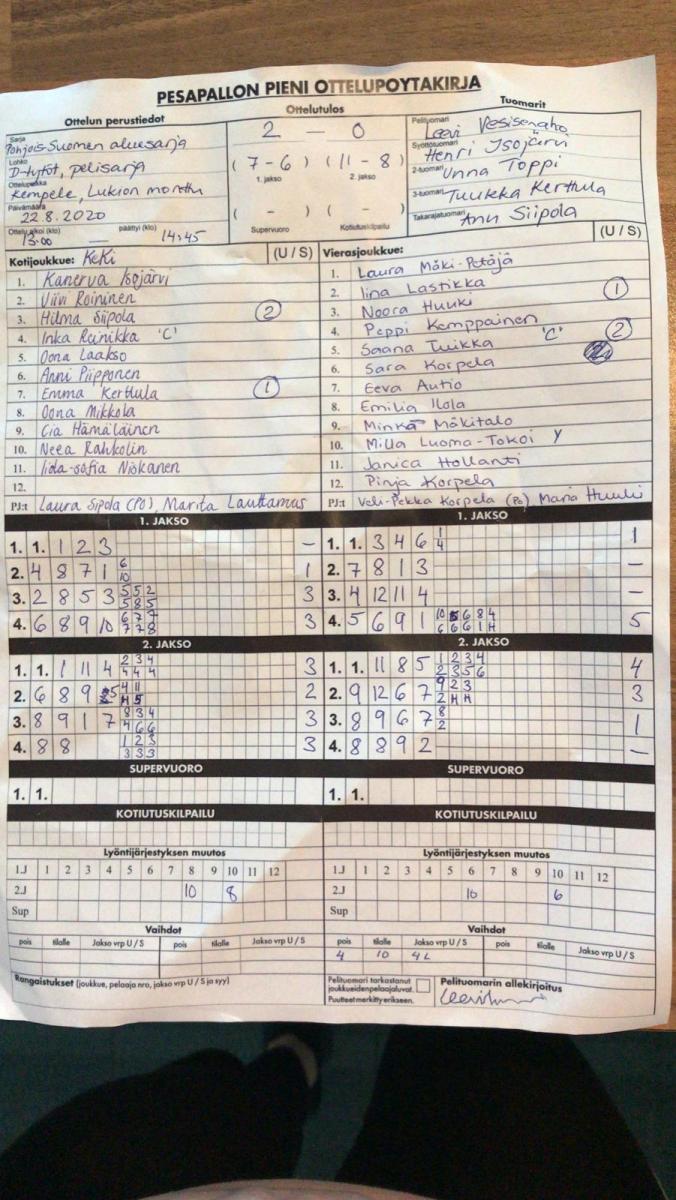 PESAPALLON PIENI OTTELUPOYTAKIRJA
Ottelun perustiedot
Ottelutulos
Tuomarit
Sarja
Pohjois-Suomen aluesarja
Lohko
D-tytöt, pelisarja
Ottelupaikka
Kempele, Lukion
Päivämäärä
22.8.2020
Ottelu alkoi (klo) päättyi (klo)
13.00 — 14:45
2 — 0
(7-6) (11-8)
1. jakso 2. jakso
( - ) ( - )
Supervuoro Kotiutuskilpailu
Pelituomari
Leevi Vesisenaho
Syöttötuomari
Henri Isojärvi
2-tuomari
Unna Toppi
3-tuomari
Tuukka Kerttula
Takarajatuomari
Anu Siipola
Kotijoukkue: KeKi (U / S)
1. Kanerva Isojärvi
2. Viivi Roininen
3. Hilma Siipola 2
4. Inka Reinikka 'C'
5. Oona Laakso
6. Anni Piipponen
7. Emma Kerttula 1
8. Oona Mikkola
9. Cia Hämäläinen
10. Neea Rahkolin
11. Iida-Sofia Niskanen
12.
PJ:t Laura Sipola (PO), Marita Lauttamus
Vierasjoukkue: (U / S)
1. Laura Mäki-Petäjä
2. Iina Lastikka 1
3. Noora Huuki
4. Peppi Kemppainen 2
5. Saana Tuikka 'C'
6. Sara Korpela
7. Eeva Autio
8. Emilia Ilola
9. Minka Mäkitalo
10. Milla Luoma-Tokoi y
11. Janica Hollanti
12. Pinja Korpela
PJ:t Veli-Pekka Korpela (Po), Maria Huuki
1. JAKSO
1. 1. 1 2 3 —
2. 4 8 7 1 6 10 1
3. 2 8 5 3 5 5 2 5 8 5 3
4. 6 8 9 10 6 7 7 7 7 8 3
1. JAKSO
1. 1. 3 4 6 1 4 1
2. 7 8 1 3 —
3. 4 12 11 4 —
4. 5 6 9 1 5
2. JAKSO
1. 1. 1 11 4 2 3 4 4 4 4 3
2. 6 8 9 5 4 11 H 5 2
3. 8 9 1 7 8 3 4 4 6 6 3
4. 8 8 1 2 3 3 3 3 3
2. JAKSO
1. 1. 11 8 5 1 2 3 4 2 3 5 6 4
2. 9 12 6 7 9 2 3 2 H H 3
3. 8 9 6 7 8 2 1
4. 8 8 9 2 —
SUPERVUORO
1. 1.
SUPERVUORO
1. 1.
KOTIUTUSKILPAILU
KOTIUTUSKILPAILU
Lyöntijärjestyksen muutos
1.J 1 2 3 4 5 6 7 8 9 10 11 12
2.J 10 8
Sup
Lyöntijärjestyksen muutos
1.J 1 2 3 4 5 6 7 8 9 10 11 12
2.J 10 6
Sup
Vaihdot
pois tilalle Jakso vrp U / S pois tilalle Jakso vrp U / S
Vaihdot
pois tilalle Jakso vrp U / S pois tilalle Jakso vrp U / S
4 10 4L
Rangaistukset (joukkue, pelaaja nro, jakso vrp U / S ja syy)
Pelituomari tarkastanut
joukkueiden pelaajaluvat.
Puutteet merkitty erikseen.
Pelituomarin allekirjoitus